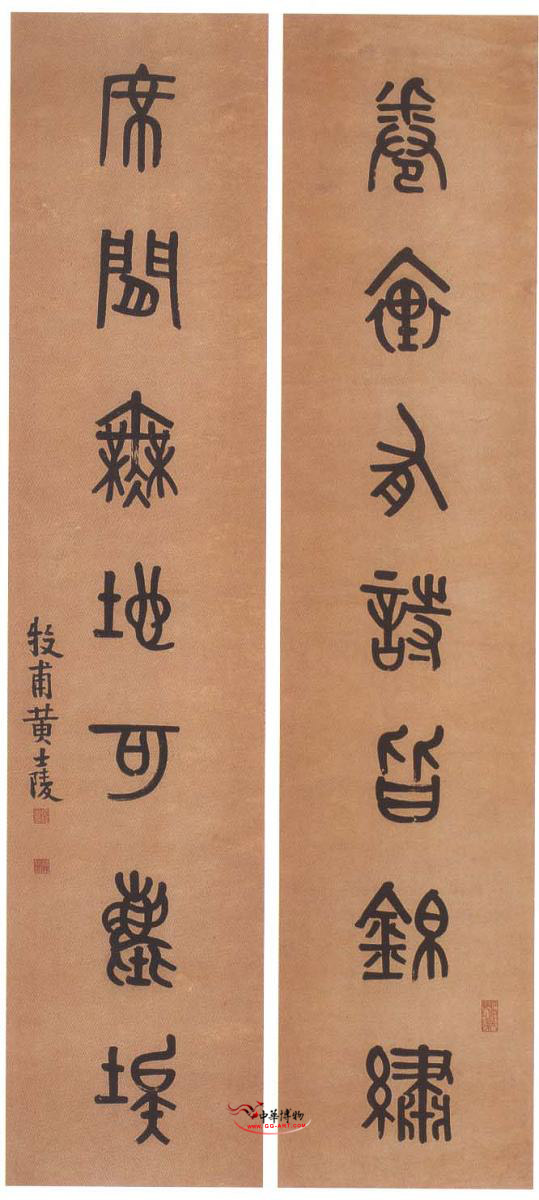 卷有詩皆錦繡
席間無地可塵埃
牧甫黃士陵
中華博物
www.GG-ART.COM